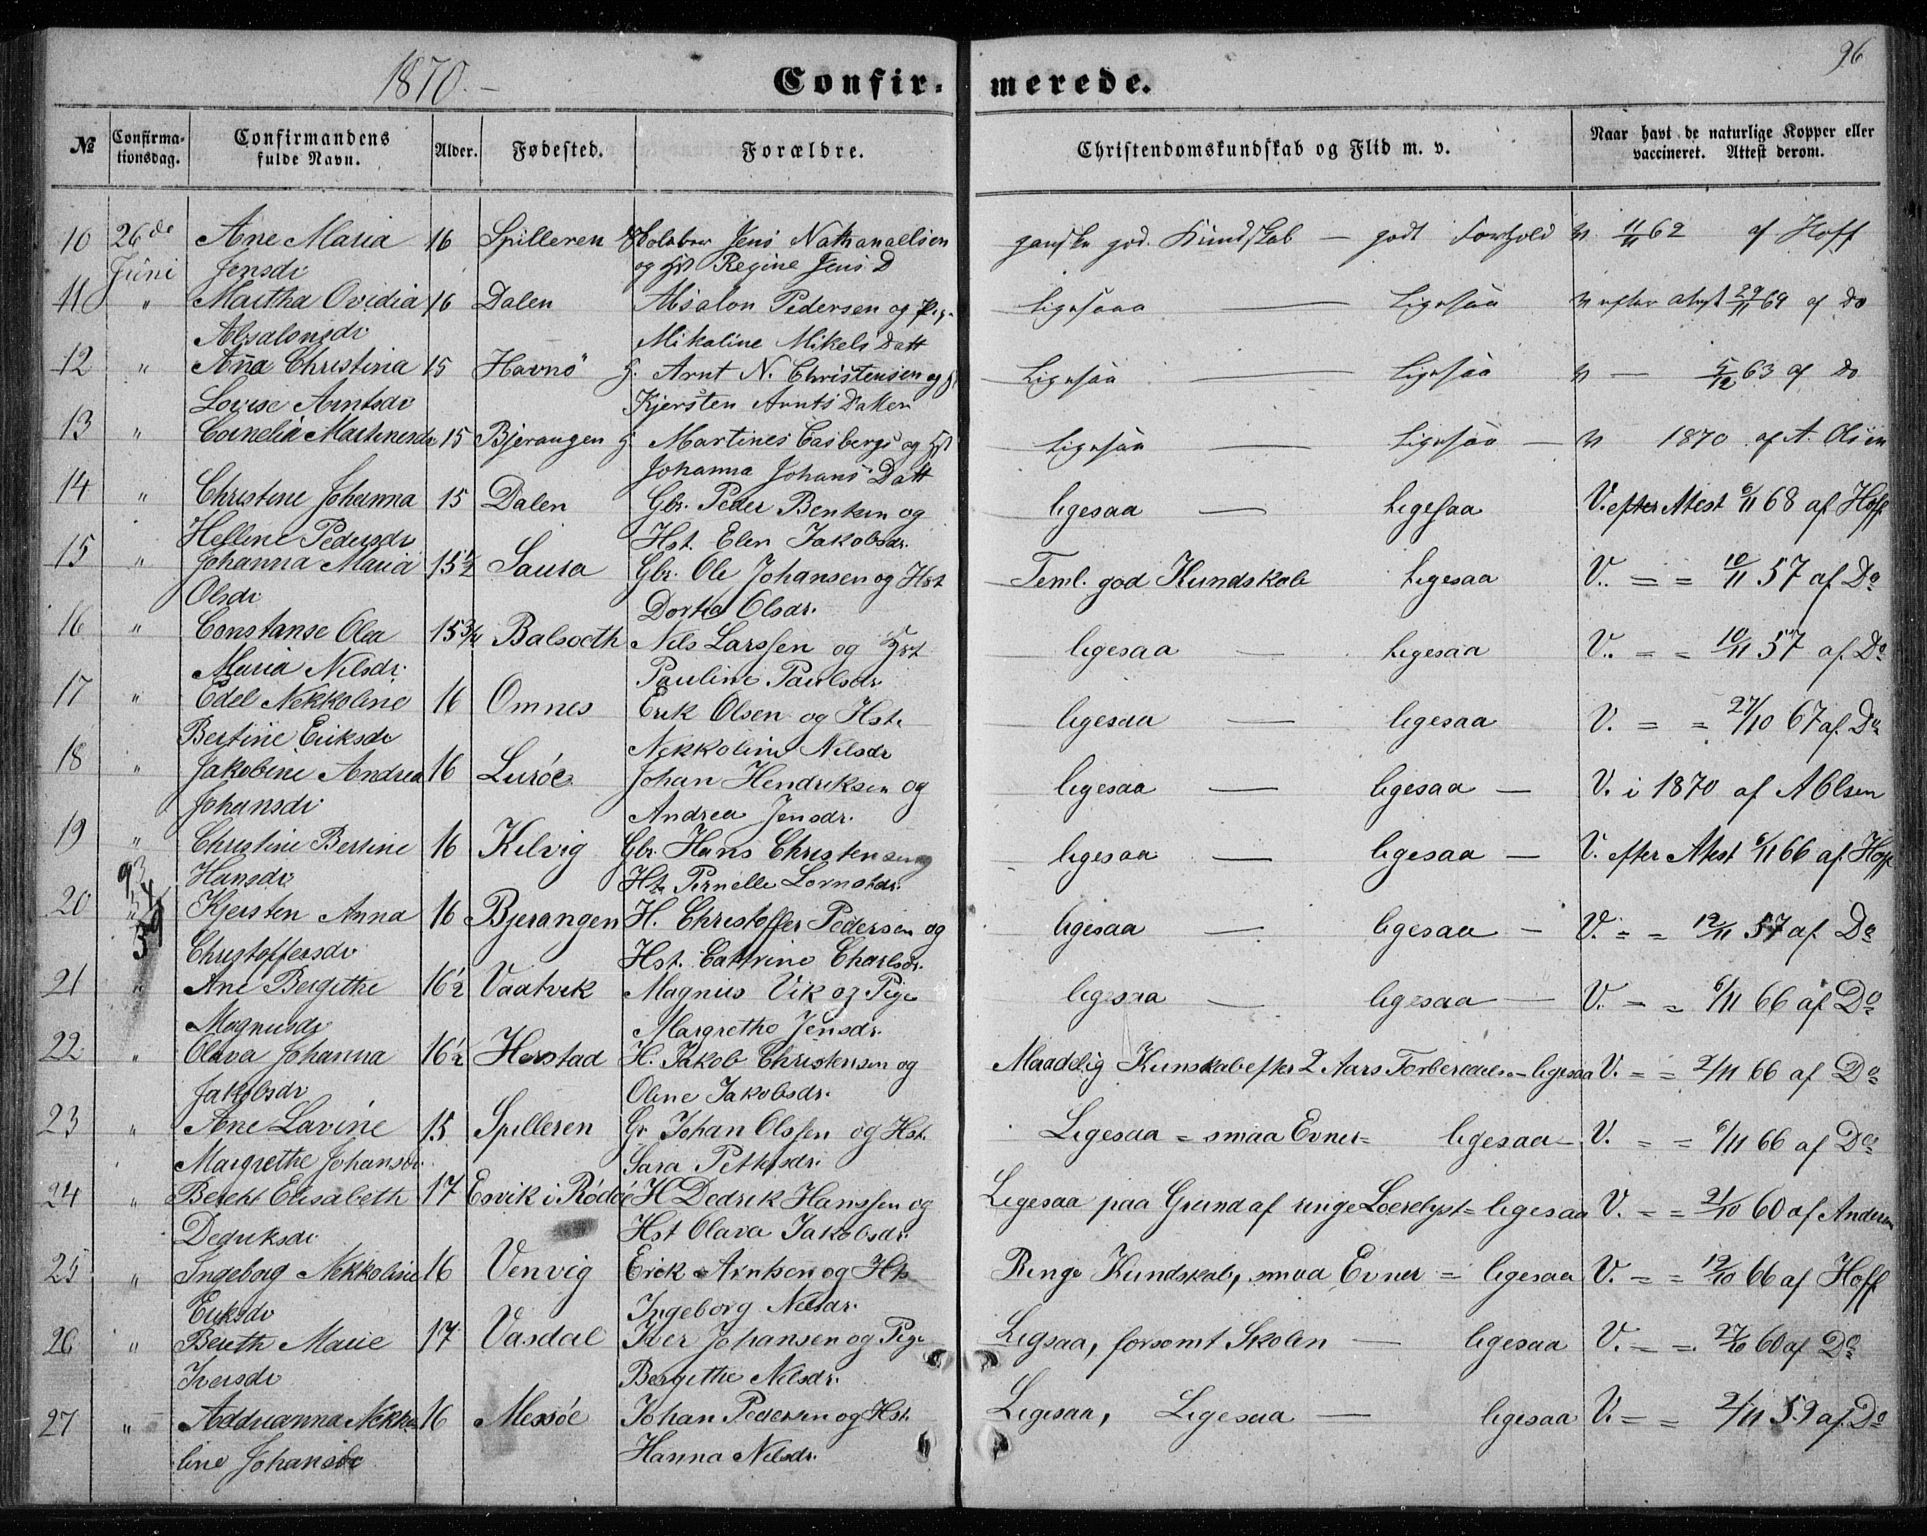 96
1870.-
Confir- merede.
№ Confirma-tionsdag. Confirmandens fulde Navn. Alder. Fødested. Forældre. Christendomskundskab og Flid m. v. Naar havt de naturlige Kopper eller vaccineret. Attest derom.
10 26de Ane Maria 16 Spilleren Jens Nathanaelsen ganske god Kundskab — godt Forhold v 11/11 62 af Hoff
Juni Jensdr og Hst Regine Jens D
11 " Martha Ovidia 16 Dalen Absalon Pedersen og Pig. Ligesaa — Ligesaa v efter Atest 29/11 69 af Do
Absalonsdr Mikaline Mikels Datt
12 " Anna Christina 15 Havnö G. Arnt N. Christensen og Hst Ligesaa — Ligesaa v — 5/12 63 af Do
Lovise Arntsdr Kjersten Arnts Datter
13 " Cornelia Martinesdr 15 Bjerangen G Martines Casberg og Hst Ligesaa — Ligesaa — v 1870 af A. Olsen
Johanna Johans Datt
14 " Christine Johanna 15 Dalen Gbr. Peder Bentsen og ligesaa — ligesaa V. efter Atest 6/11 68 af Hoff
Helline Pedersdr Hst. Elen Jakobsdr.
15 " Johanna Maria 15 1/2 Saura Gbr. Ole Johansen og Hst Teml. god Kundskab ligesaa V. = = 10/11 57 af Do
Olsdr Dortea Olsdr.
16 " Constanse Olea 15 3/4 Balsoeth Nils Larssen og Hst ligesaa — ligesaa V. = = 10/11 57 af. Do
Maria Nilsdr. Pauline Paulsdr
17 " Edel Nekkoline 16 Omnes Erik Olsen og Hst. ligesaa — ligesaa V. = = 27/10 67 af. Do
Bertine Eriksdr Nekkoline Nilsdr
18 " Jakobine Andrea 16 Luröe Johan Hendriksen og ligesaa — ligesaa — V. i 1870 af A Olsen
Johansdr Andrea Jensdr.
19 " Christine Bertine 16 Kilvig Gbr. Hans Christensen og ligesaa — ligesaa — V. efter Atest 6/11 66 af. Hoff
Hansdr. Hst. Pernelle Lorntsdr.
20 " Kjersten Anna 16 Bjerangen H. Christoffer Pedersen og ligesaa — ligesaa — V. = = 12/11 57 af. Do
Christoffersdr Hst. Catrine Charlsdr.
21 " Ane Bergithe 16 1/2 Vaatvik Magnus Vik og Pige ligesaa — ligesaa — V. = = 6/11 66 af Do
Magnusdr Margrethe Jensdr.
22 " Olava Johanna 16 1/2 Horstad H. Jakob Christensen og Maadelig Kunskab efter 2 Aars Forberedelse = ligesaa V. = = 2/11 66 af Do
Jakobsdr Oline Jakobsdr.
23 " Ane Lavine 15 Spilleren Gr Johan Olssen og Hst. Ligesaa = smaa Evner = ligesaa — V. = = 6/11 66 af Do
Margrethe Johansdr. Sara Petersdr.
24 " Bereht Elisabeth 17 Esvik i Rödöe H Dedrik Hanssen og Ligesaa paa Grund af ringe Loerelyst = ligesaa V. = = 21/10 60 af Andersen
Dedriksdr Hst Olava Jakobsdr.
25 " Ingeborg Nekkoline 16 Venvig Erik Arntsen og Hst Ringe Kundskab, smaa Evner = ligesaa V. = = 12/10 66 af Hoff
Eriksdr Ingeborg Nilsdr.
26 " Bereth Marie 17 Vasdal Iver Johansen og Pige Ligsaa, forsømt Skolen — ligesaa V. = = 27/10 60 af Do
Iversdr Bergithe Nilsdr.
27 " Addrianna Nekko- 16 Mesöe Johan Pedersen og Hst. Ligesaa, Ligesaa — ligesaa V. = = 2/11 59 af Do
line Johansdr Hanna Nilsdr.